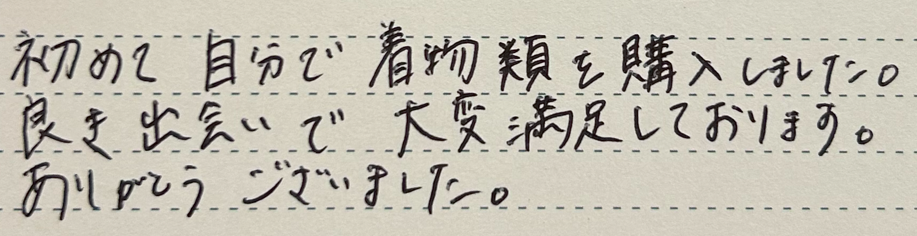 初めて自分で着物類を購入しました。
良き出会いで大変満足しております。
ありがとうございました。